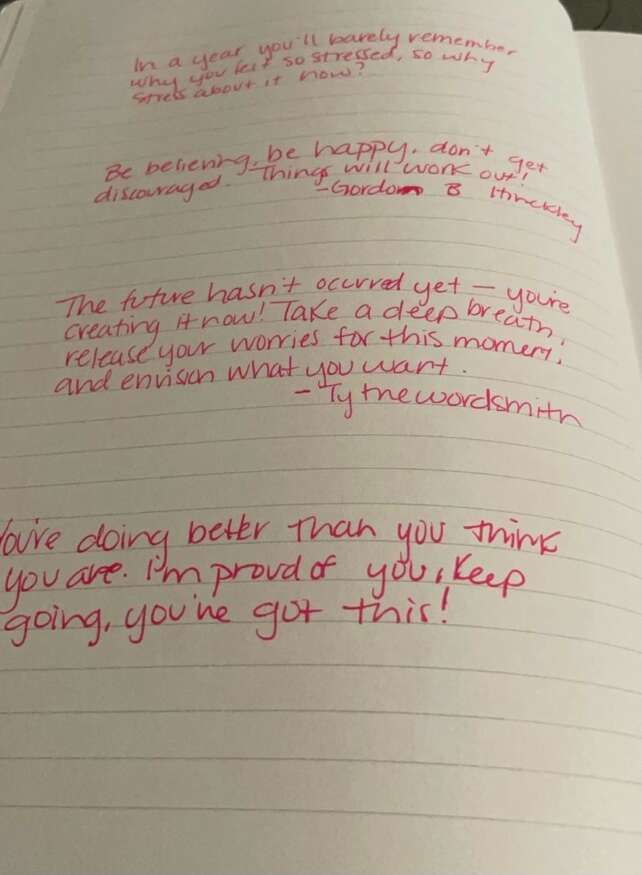 In a year you'll barely remember
why you felt so stressed, so why
stress about it now?
Be believing, be happy, don't get
discouraged. Things will work out!
-Gordon B Hinckley
The future hasn't occurred yet — you're
creating it now! Take a deep breath,
release your worries for this moment,
and envision what you want.
- Tythewordsmith
You're doing better than you think
you are. I'm proud of you, keep
going, you've got this!